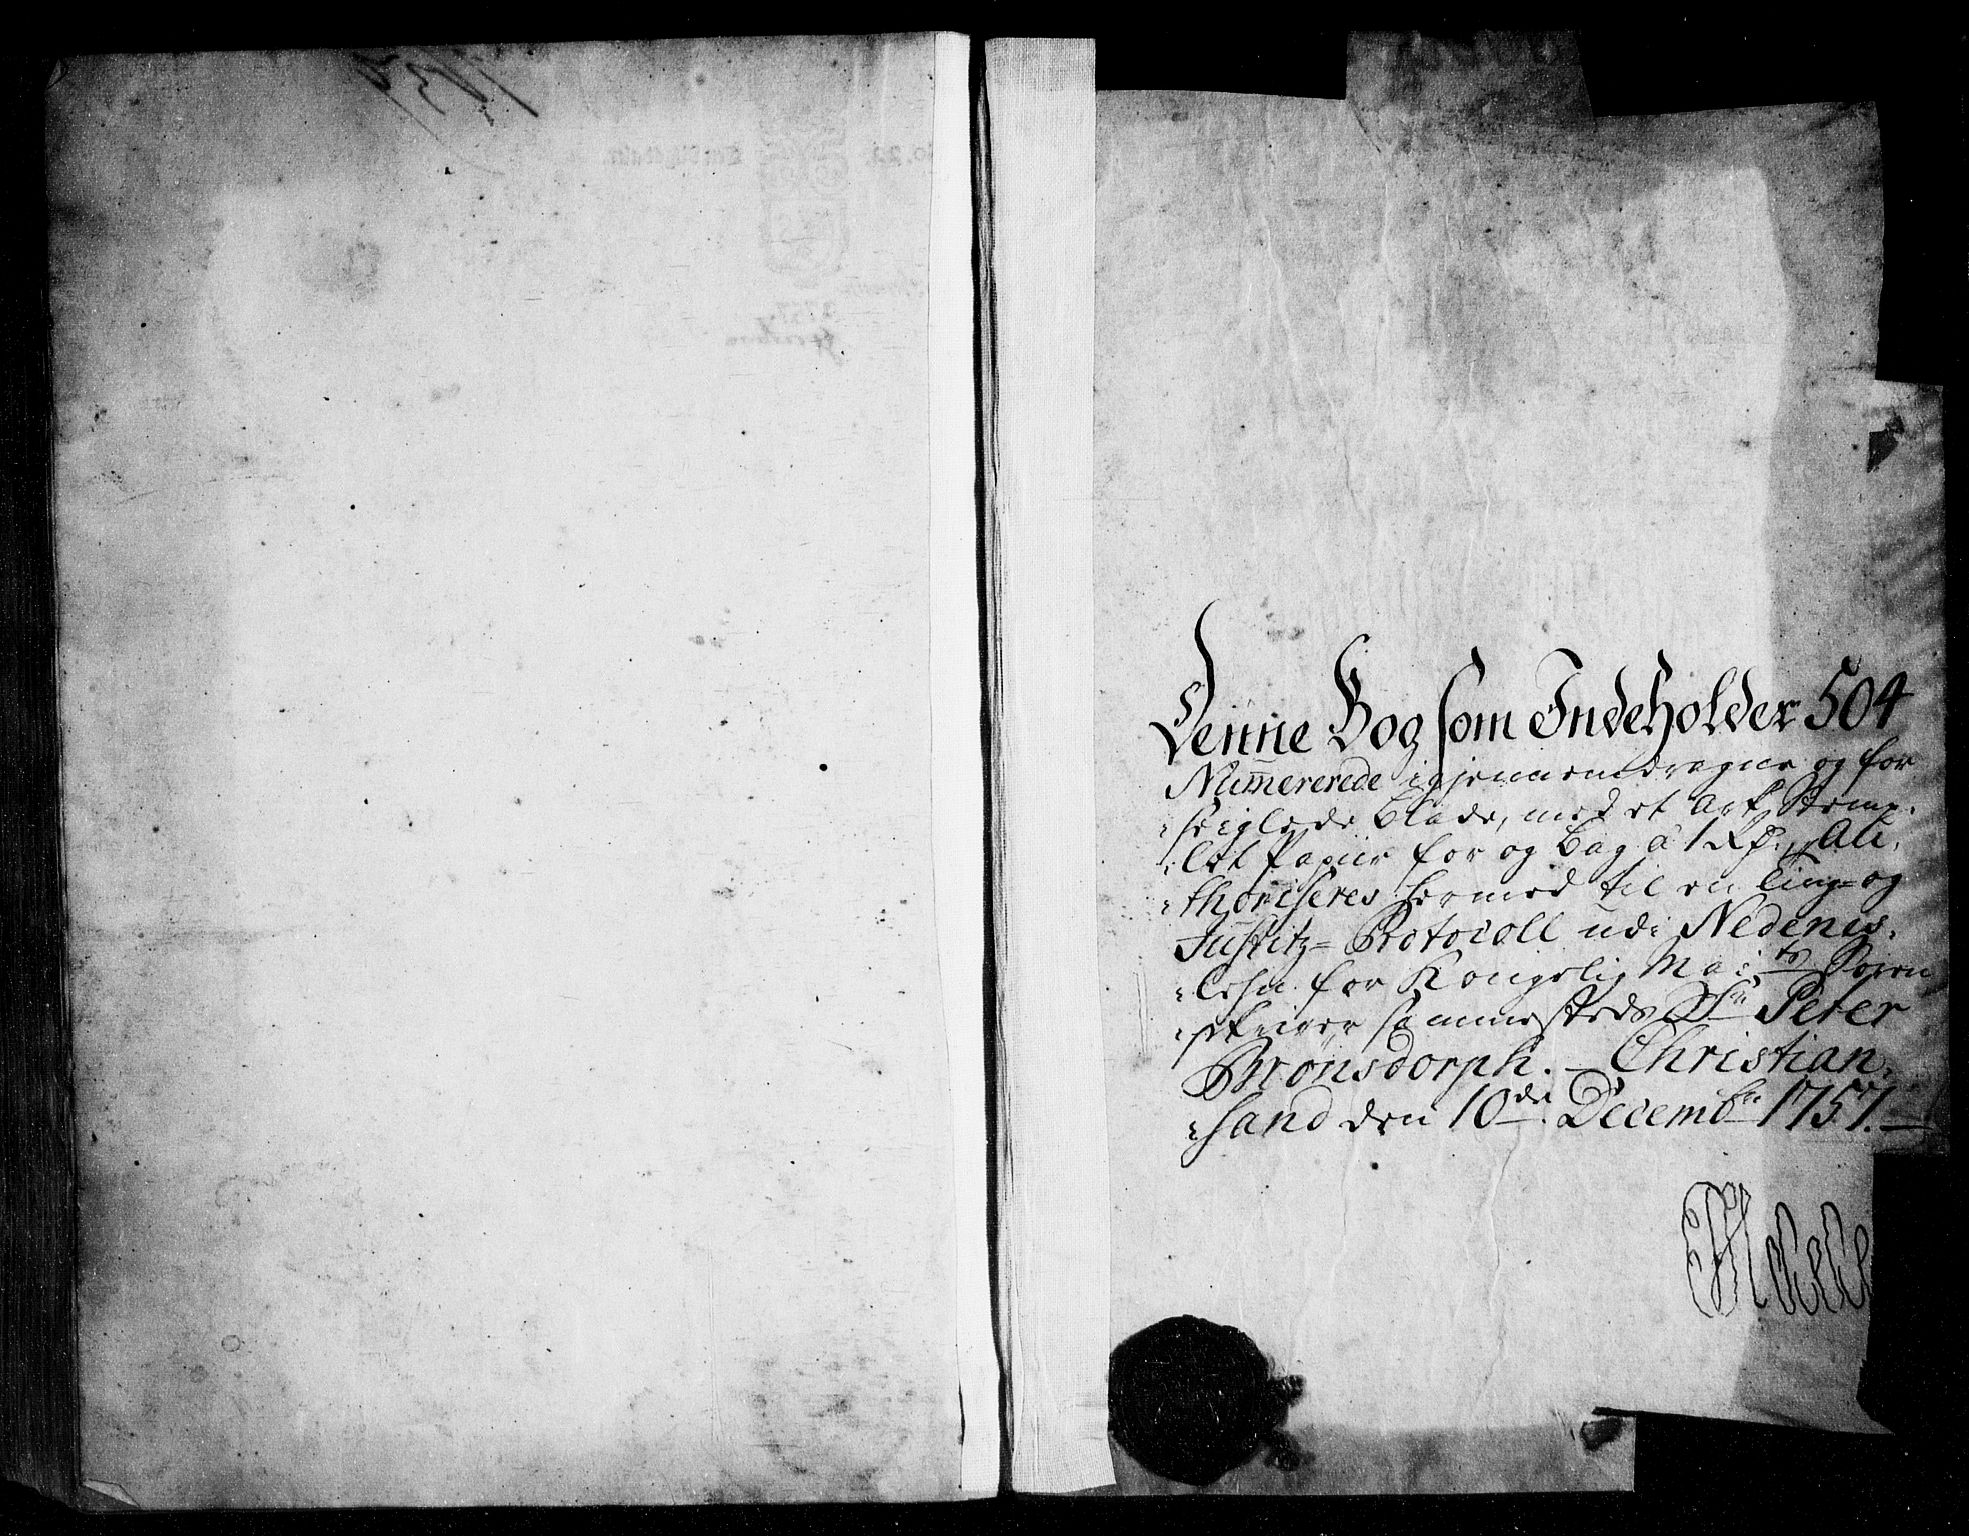 Denne Bog som Indeholder 504
Numererede igjennemdragne og for
:seiglede blade, med et Ark Stemp:
:let Papiir for og bag a 1 Rd:, Au:
:thoriseres hermed til en ting= og
Justitz= Protocoll udi Nedenes:
:lehn for Kongelig Mai:ts Soren
:skriver sammesteds Sr: Peter
Bronsdorph. – Christian:
:sand den 10de Decembr 1757. –